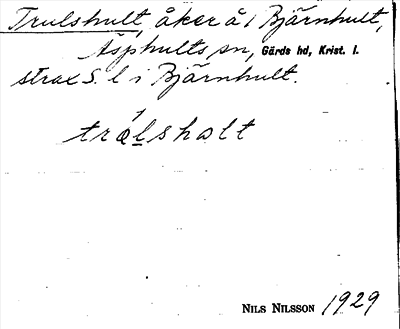 Trulshult, åker å 1 Bjärnhult,
Äsphults sn, Gärds hd, Krist. l.
strax S. l i Bjärnhult.
trólshɷlt
NILS NILSSON 1929